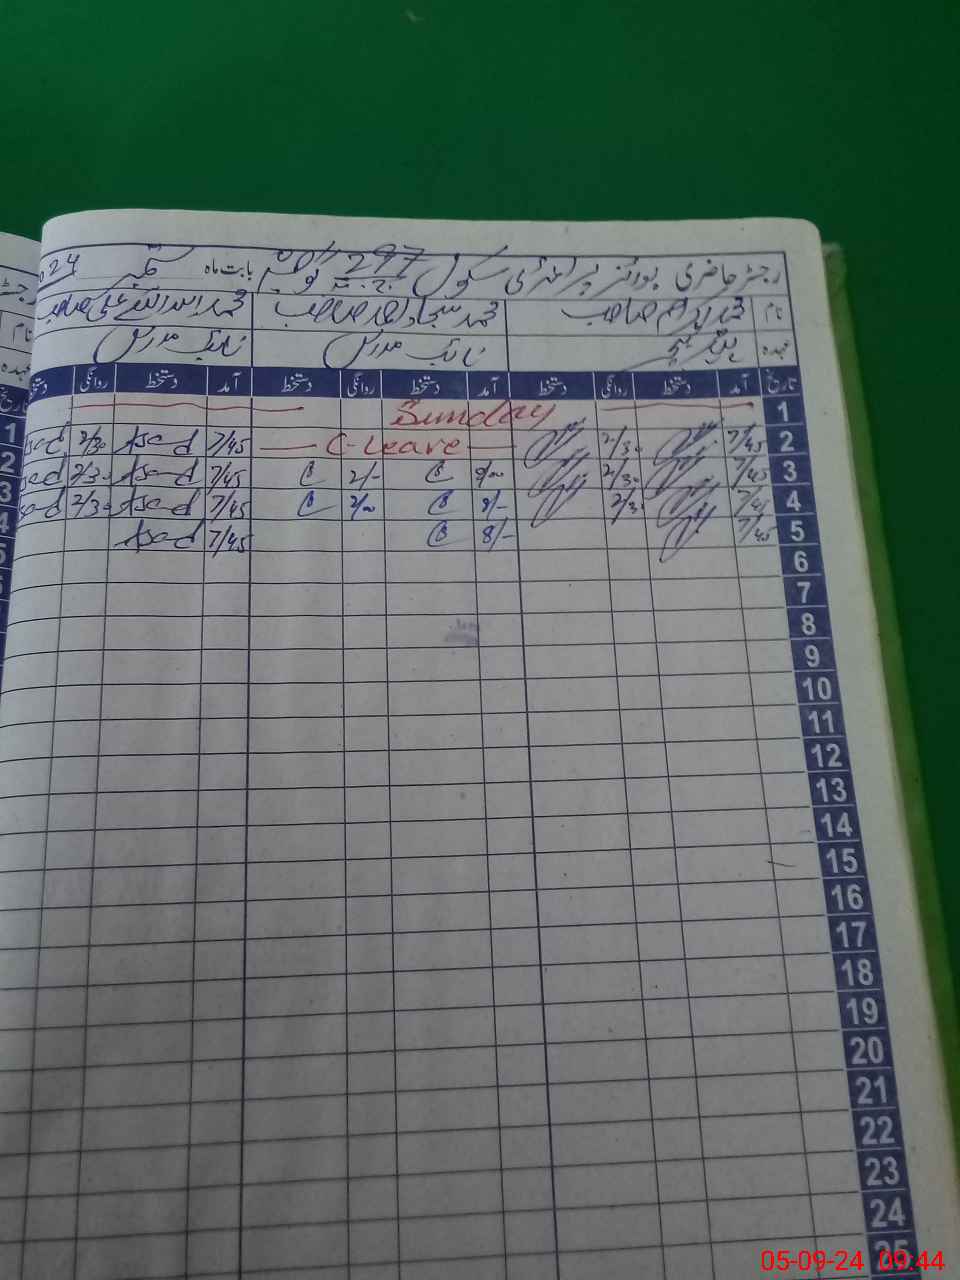 رجسٹر حاضری بوائز پرائمری سکول 297 بابت ماہ ستمبر 24
نام محمد صاحب محمد سجاد احمد صاحب محمد اسد اللہ صاحب
عہدہ نائیک مدرس نائیک مدرس
تاریخ آمد دستخط روانگی دستخط آمد دستخط روانگی دستخط آمد دستخط روانگی دستخط
1 Sunday
2 7/45 2/30 C-Leave 7/45 Asad 2/30 Asad
3 7/45 2/30 8/00 2/- 7/45 Asad 2/30 Asad
4 7/45 2/30 8/- 2/00 7/45 Asad 2/30 Asad
5 7/45 8/- 7/45 Asad
6
7
8
9
10
11
12
13
14
15
16
17
18
19
20
21
22
23
24
25
05-09-24 09:44